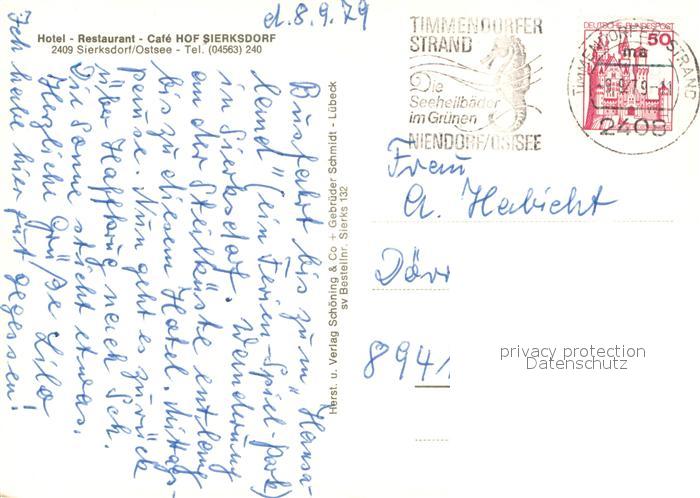 d. 8. 9. 79
Hotel - Restaurant - Café HOF SIERKSDORF
2409 Sierksdorf/Ostsee - Tel. (04563) 240
Busfahrt bis zum "Hansa-
land" (ein Ferien-Spiel-Park)
in Sierksdorf. Wanderung
an der Steilküste entlang
bis zu diesem Hotel. Mittags-
pause. Nun geht es zurück
über Haffkrug nach Sch.
Die Sonne sticht etwas.
Herzliche Grüße Lilo
Ich habe hier gut gegessen!
Herst. u. Verlag Schöning & Co + Gebrüder Schmidt - Lübeck
sv Bestellnr. Sierks 132
TIMMENDORFER
STRAND
Die
Seeheilbäder
im Grünen
NIENDORF/OSTSEE
DEUTSCHE BUNDESPOST
50
TIMMENDORFER STRAND
ma
2408
Frau
A. Habicht
Dörr
8941
privacy protection
Datenschutz